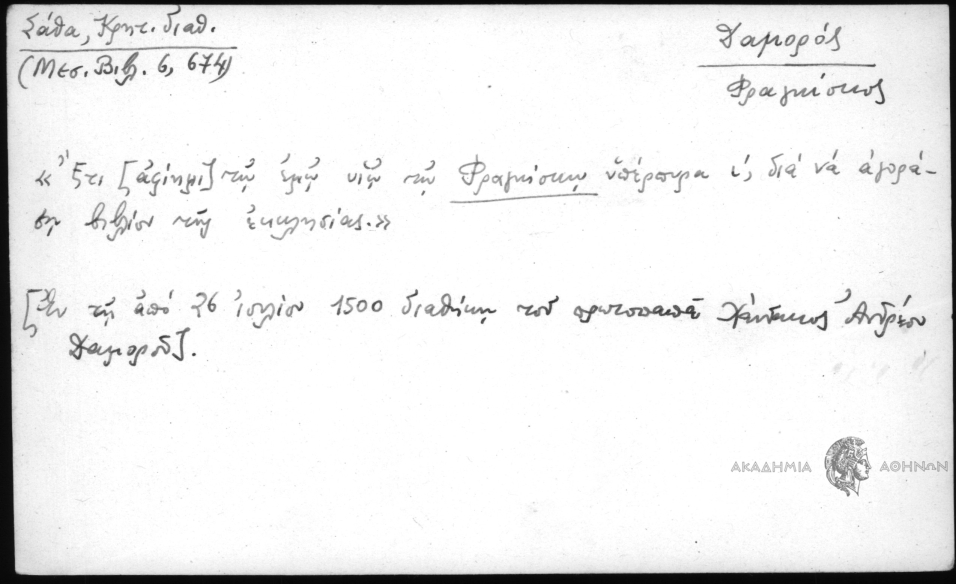 Σάθα, Κρητ. διαθ.
(Μεσ. Βιβλ. 6, 674)
Δαμορός
Φραγκίσκος
«Ἔτι [ἀφίημι] τῷ ἐμῷ υἱῷ τῷ Φραγκίσκῳ ὑπέρπυρα ι΄, διά νά ἀγορά-
σῃ βιβλίον τῆς ἐκκλησίας.»
[Ἐν τῇ ἀπό 26 ἰουλίου 1500 διαθήκῃ τοῦ πρωτοπαπᾶ Χάνδακος Ἀνδρέου
Δαμοροῦ].
ΑΚΑΔΗΜΙΑ ΑΘΗΝΩΝ